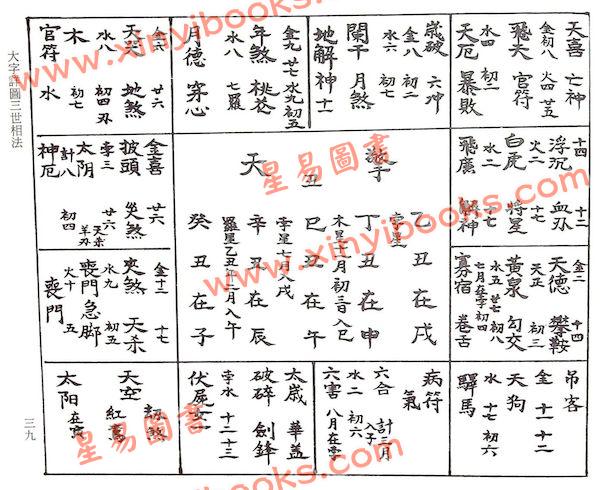 大字詳圖三世相法
三九
天喜 亡神
金初八 火四 廿五
飛天 官符
水四 初二
天厄 暴敗
歲破 六冲
金八 初二
水六
闌干 月煞
地解神 十一
金九 廿七 水九 初五
年煞 桃花
水八 七羅
月德 穿心
金六 廿六
天哭 地煞
水八 初四刃
木 初七
官符 水
十四 十二
浮沉 血刃
火二 十七
白虎 將星
水二 十七
飛廉 解神
金喜 廿六
披頭 災煞
孛三 廿六
太阴
計八
神厄 初四
金二 十四
天德 攀鞍
天正 初三
黃泉 勾交
水五 廿七 初八
七月在孛 初四
寡宿 卷舌
金十三 十七
突煞 天杀
水九 初五
喪門 急脚
火十 五
喪門
吊客
金 十一 十二
天狗
水 十七 初六
驛馬
病符
氣
六合 計三月入子
水二 初六
六害 八月在孛
太歲 華蓋
破碎 劍鋒
孛水 十二 十三
伏屍
天空 紅鸞
太阳
天 丑
乙丑在戌
孛星
丁丑在申
木星十一月初三日入巳
巳丑在午
孛星七月入戌
辛丑在辰
羅星乙丑年二月入午
癸丑在子
星易圖書
www.xinyibooks.com
www.xinyibooks.com
www.xinyibooks.com
星易圖書
星易圖書